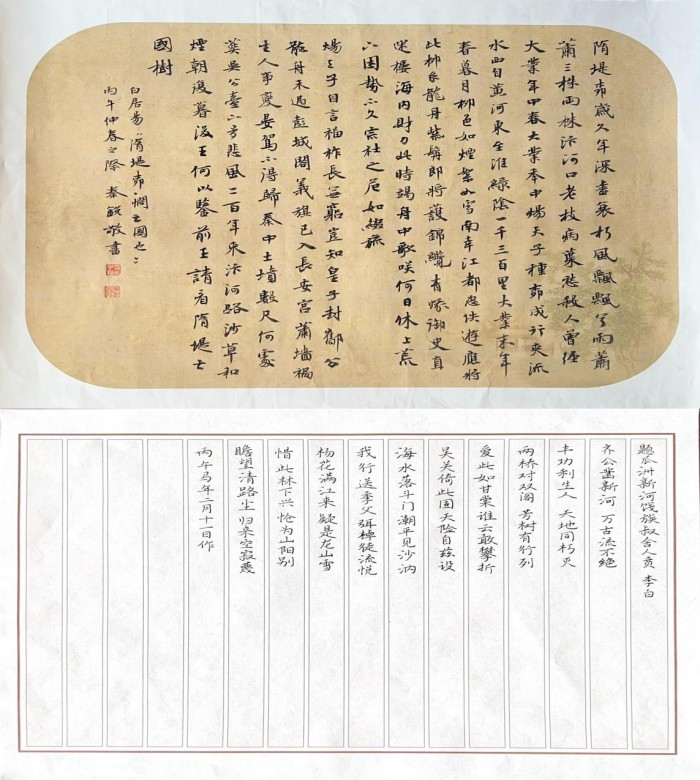 隋堤柳歲久年深盡衰朽風飄飄兮雨蕭
蕭三株兩株汴河口老枝病葉愁殺人曾經
大業年中春大業年中煬天子種柳成行夾流
水西自黃河東至淮綠陰一千三百里大業末年
春暮月柳色如煙絮如雪南幸江都恣佚遊應將
此柳系龍舟紫髯郎將護錦纜青娥御史直
迷樓海內財力此時竭舟中歌咲何日休上荒
下困勢不久宗社之危如綴旒
煬天子自言福祚長無窮豈知皇子封酅公
龍舟未過彭城閣義旗已入長安宮蕭墻禍
生人事變晏駕不得歸秦中土墳數尺何處
葬吳公臺下多悲風二百年來汴河路沙草和
煙朝復暮後王何以鑒前王請看隋堤亡
國樹
白居易：隋堤柳，憫亡國也；
丙午仲春之際 秦 敬書
题瓜洲新河饯族叔舍人贲 李白
齐公凿新河 万古流不绝
丰功利生人 天地同朽灭
两桥对双阁 芳树有行列
爱此如甘棠 谁云敢攀折
吴关倚此固 天险自兹设
海水落斗门 潮平见沙汭
我行送季父 弭棹徒流悦
杨花满江来 疑是龙山雪
惜此林下兴 怆为山阳别
瞻望清路尘 归来空寂蔑
丙午马年二月十一日作